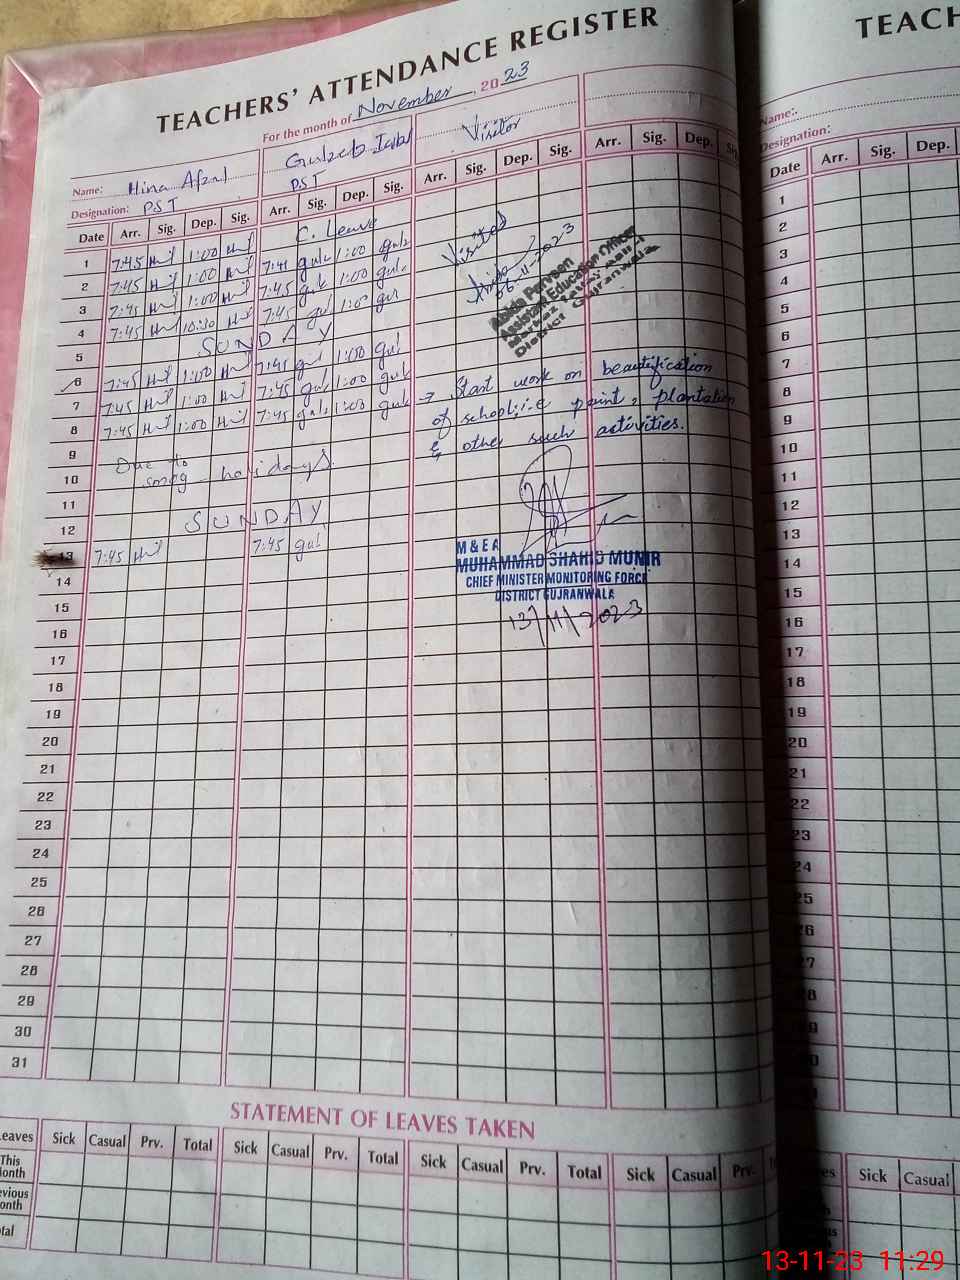 TEACHERS' ATTENDANCE REGISTER
For the month of November 2023
Name: Hina Afzal Gulzeb Iqbal Visitor
Designation: PST PST
Date Arr. Sig. Dep. Sig. Arr. Sig. Dep. Sig. Arr. Sig. Dep. Sig. Arr. Sig. Dep. Sig.
1 7:45 1:00 C. Leave
2 7:45 1:00 7:45 gul 1:00 gul
3 7:45 1:00 7:45 gul 1:00 gul
4 7:45 10:30 7:45 gul 1:00 gul
5 SUNDAY
6 7:45 1:00 7:45 gul 1:00 gul
7 7:45 1:00 7:45 gul 1:00 gul
8 7:45 1:00 7:45 gul 1:00 gul
9
10 Due to smog holidays.
11
12 SUNDAY
13 7:45 7:45 gul
14
15
16
17
18
19
20
21
22
23
24
25
26
27
28
29
30
31
Visited
06-11-2023
Abida Parveen
Assistant Education Officer
District Gujranwala
→ Start work on beautification
of school; i.e paint, plantation
& other such activities.
M & E A
MUHAMMAD SHAHID MUNIR
CHIEF MINISTER MONITORING FORCE
DISTRICT GUJRANWALA
13/11/2023
STATEMENT OF LEAVES TAKEN
Leaves Sick Casual Prv. Total Sick Casual Prv. Total Sick Casual Prv. Total Sick Casual Prv.
This Month
Previous Month
Total
TEACH
Name:
Designation:
Date Arr. Sig. Dep.
1
2
3
4
5
6
7
8
9
10
11
12
13
14
15
16
17
18
19
20
21
22
23
24
25
26
27
28
Sick Casual
13-11-23 11:29